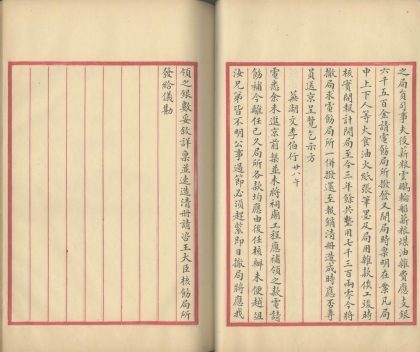 之局員司事夫役薪糧雲鵬輪船薪糧煤油雜費應支銀
六千五百金請電飭局所撥發又開局時稟明在案凡局
中上下人等火食油火紙張筆墨及局用雜款俟工竣時
核實開報計開局至今三年餘共數用七千三百兩零今將
撤局求電飭局所一併撥還至報銷清冊造成時應否專
員送京呈覽乞示方
蕪湖交李伯行 廿八午
電悉余未進京前並未將祠廟工程應補領之款電請
飭補今離任已久局所各款均應由後任核辦未便越俎
汝兄弟皆不明公事過節必須趕緊即日撤局將應我
領之銀數妥敘詳稟並速造清冊請咨王大臣核飭局所
發給儀勘